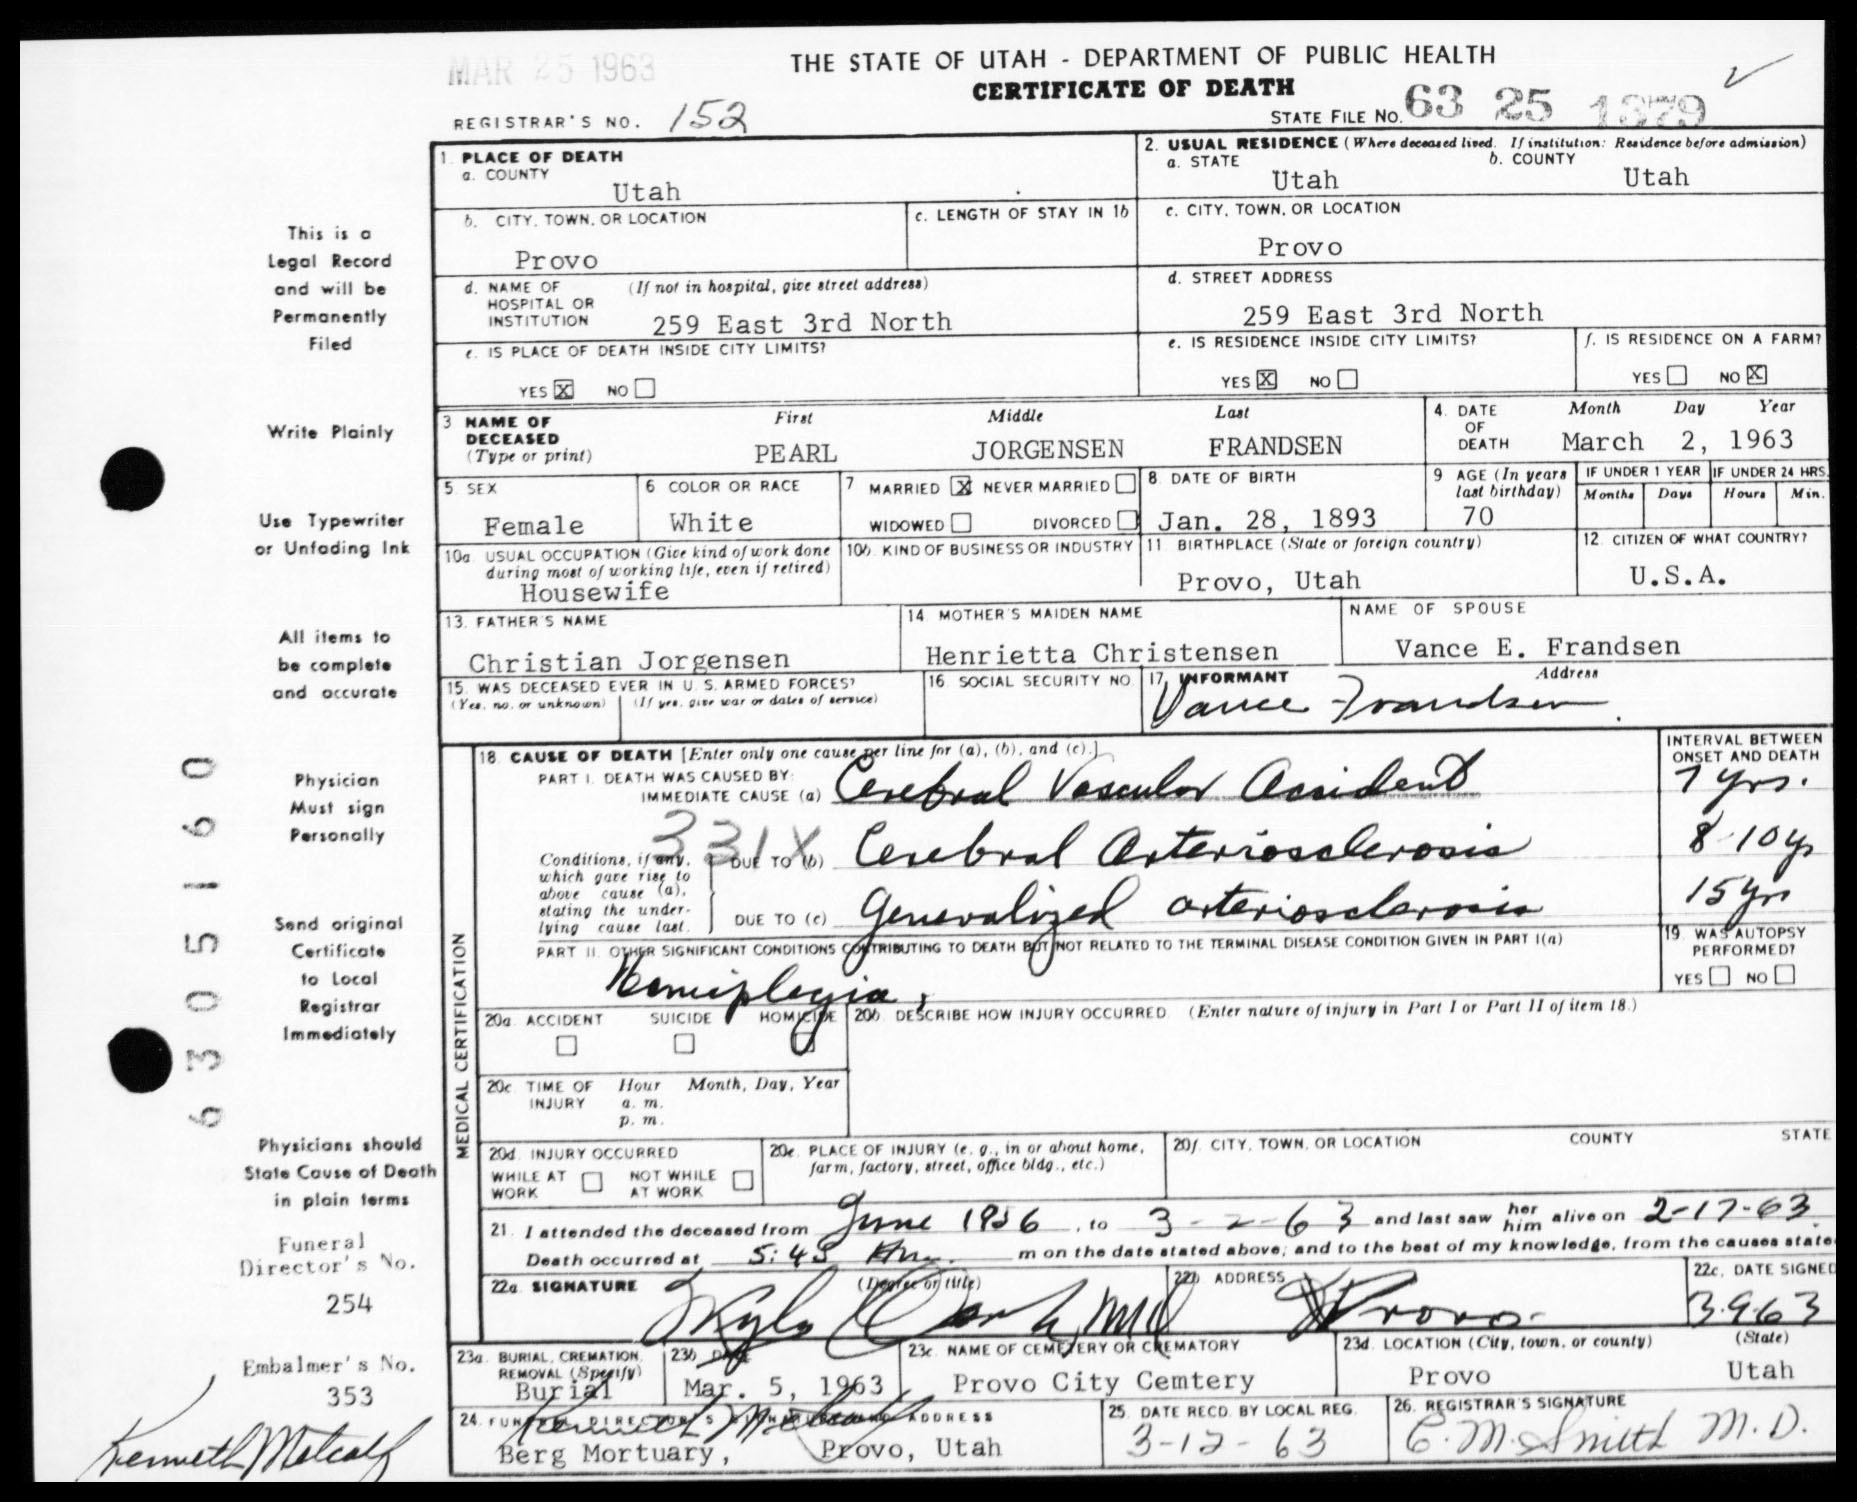 MAR 25 1963
THE STATE OF UTAH - DEPARTMENT OF PUBLIC HEALTH
CERTIFICATE OF DEATH
REGISTRAR'S NO. 152
STATE FILE NO. 63 25 1379
This is a
Legal Record
and will be
Permanently
Filed
Write Plainly
Use Typewriter
or Unfading Ink
All items to
be complete
and accurate
Physician
Must sign
Personally
Send original
Certificate
to Local
Registrar
Immediately
Physicians should
State Cause of Death
in plain terms
Funeral
Director's No.
254
Embalmer's No.
353
Kenneth Metcalf
6305160
1. PLACE OF DEATH
a. COUNTY
Utah
2. USUAL RESIDENCE (Where deceased lived. If institution: Residence before admission)
a. STATE b. COUNTY
Utah Utah
b. CITY, TOWN, OR LOCATION
Provo
c. LENGTH OF STAY IN 1b
c. CITY, TOWN, OR LOCATION
Provo
d. NAME OF (If not in hospital, give street address)
HOSPITAL OR
INSTITUTION 259 East 3rd North
d. STREET ADDRESS
259 East 3rd North
e. IS PLACE OF DEATH INSIDE CITY LIMITS?
YES X NO
e. IS RESIDENCE INSIDE CITY LIMITS?
YES X NO
f. IS RESIDENCE ON A FARM?
YES NO X
3 NAME OF First Middle Last
DECEASED
(Type or print) PEARL JORGENSEN FRANDSEN
4. DATE Month Day Year
OF
DEATH March 2, 1963
5. SEX
Female
6 COLOR OR RACE
White
7 MARRIED X NEVER MARRIED
WIDOWED DIVORCED
8. DATE OF BIRTH
Jan. 28, 1893
9 AGE (In years
last birthday)
70
IF UNDER 1 YEAR IF UNDER 24 HRS.
Months Days Hours Min.
10a. USUAL OCCUPATION (Give kind of work done
during most of working life, even if retired)
Housewife
10b. KIND OF BUSINESS OR INDUSTRY
11. BIRTHPLACE (State or foreign country)
Provo, Utah
12. CITIZEN OF WHAT COUNTRY?
U.S.A.
13. FATHER'S NAME
Christian Jorgensen
14 MOTHER'S MAIDEN NAME
Henrietta Christensen
NAME OF SPOUSE
Vance E. Frandsen
15. WAS DECEASED EVER IN U. S. ARMED FORCES?
(Yes, no, or unknown) (If yes, give war or dates of service)
16. SOCIAL SECURITY NO.
17. INFORMANT Address
Vance Frandsen
MEDICAL CERTIFICATION
18. CAUSE OF DEATH [Enter only one cause per line for (a), (b), and (c).]
INTERVAL BETWEEN
ONSET AND DEATH
PART I. DEATH WAS CAUSED BY:
IMMEDIATE CAUSE (a) Cerebral Vascular Accident 7 yrs.
331X
Conditions, if any,
which gave rise to
above cause (a),
stating the under-
lying cause last.
DUE TO (b) Cerebral Arteriosclerosis 8-10 yr
DUE TO (c) Generalized arteriosclerosis 15 yrs
PART II. OTHER SIGNIFICANT CONDITIONS CONTRIBUTING TO DEATH BUT NOT RELATED TO THE TERMINAL DISEASE CONDITION GIVEN IN PART I(a)
Hemiplegia,
19. WAS AUTOPSY
PERFORMED?
YES NO
20a. ACCIDENT SUICIDE HOMICIDE
20b. DESCRIBE HOW INJURY OCCURRED. (Enter nature of injury in Part I or Part II of item 18.)
20c TIME OF Hour Month, Day, Year
INJURY a. m.
p. m.
20d. INJURY OCCURRED
WHILE AT WORK NOT WHILE AT WORK
20e. PLACE OF INJURY (e. g., in or about home,
farm, factory, street, office bldg., etc.)
20f. CITY, TOWN, OR LOCATION COUNTY STATE
21. I attended the deceased from June 1956, to 3-2-63 and last saw her him alive on 2-17-63.
Death occurred at 5:45 Am. m on the date stated above; and to the best of my knowledge, from the causes state
22a SIGNATURE (Degree or title)
MD
22b ADDRESS
Provo.
22c. DATE SIGNED
3-9-63
23a. BURIAL, CREMATION,
REMOVAL (Specify)
Burial
23b DATE
Mar. 5, 1963
23c. NAME OF CEMETERY OR CREMATORY
Provo City Cemtery
23d. LOCATION (City, town, or county) (State)
Provo Utah
24. FUNERAL DIRECTOR'S SIGNATURE AND ADDRESS
Kenneth Metcalf
Berg Mortuary, Provo, Utah
25. DATE RECD. BY LOCAL REG.
3-12-63
26. REGISTRAR'S SIGNATURE
C. M. Smith M.D.